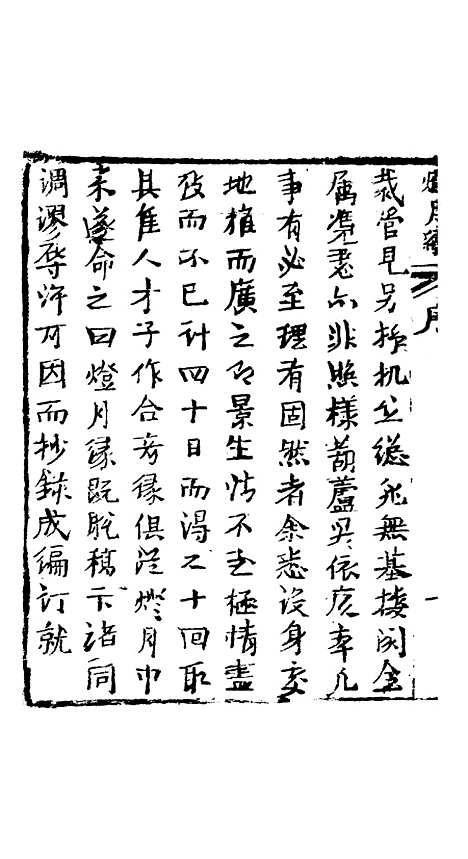 燈月緣 序 一
裁管見另抒机㐰縂非無基接閣全
属凴虚亦非照樣葫蘆另依度奉凢
事有必至理有固然者余悉設身𠁅
地推而廣之即景生情不至極情盡
致而不已計四十日而得乙十回取
其佳人才子作合竒緣俱從燈月中
来遂命之曰燈月緣既脫稿下諸同
調謬辱許可因而抄錄成編訂就